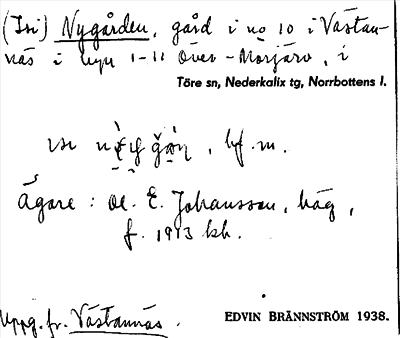 (Isi) Nygården, gård i no 10 i Västan-
näs i byn 1-11 Över-Morjärv, i
Töre sn, Nederkalix tg, Norrbottens l.
bf. m.
Ägare: oe. E. Johansson, häg,
f. 1913 bh.
Uppg. fr. Västannäs.
EDVIN BRÄNNSTRÖM 1938.